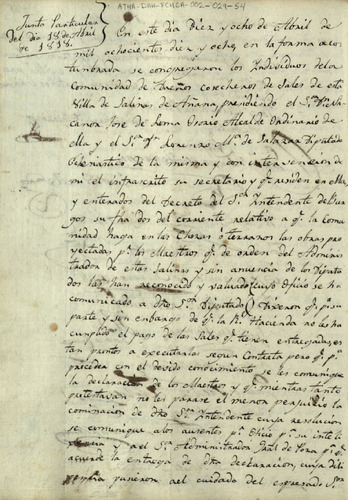 ATHA-DAH-FCMCA-002-029-54
Junta Particular
del dia 18 de Abril
de 1818.
En este dia Diez y ocho de Abril de
mil ochocientos diez y ocho, en la forma acos
tumbrada se congregaron los Individuos dela
Comunidad de Dueños cosecheros de Sales de esta
Villa de Salinas de Añana, presidiendo el Sr. Dn.
canor Jose de Lema Osorio Alcalde Ordinario de
ella y el Sr. Dn. Lorenzo Ma. de Salazar Diputado
de la misma y con intervencion de
mi el infrascrito su secretario y qe. residen en ella
y enterados del Decreto del Sr. Intendente de Bur
gos su fha dos del corriente relativo a qe. la co
munidad haga en las Eras o terrenos las obras pro
yectadas pr. los Maestros qe. de orden del Adminis
trador de estas Salinas y sin anuencia de los Diputa
dos las han reconocido y valuado, cuyo Oficio se ha
comunicado a dho Sr. Diputado: Dixeron qe. por su
parte y sin embargo de qe. la Rl. Hacienda no les ha
cumplido el pago de las Sales qe. tienen entregadas, es
tan prontos a executarlas segun Contrata pero qe. pa.
proceder con el devido conocimiento se les comunique
la declaracion de los Maestros y qe. mientras tanto
protestavan no les parare el menor perjuicio la
conminacion de dho Sr. Intendente cuya resolucion
se comunique a los ausentes pr. Oficio pa. su inteli
gencia y a el Sr. Administrador Pral. de Poza pa. qe.
acuerde la entrega de dha declaracion, cuya dili
gencia pusieron al cuidado del expresado Sr.